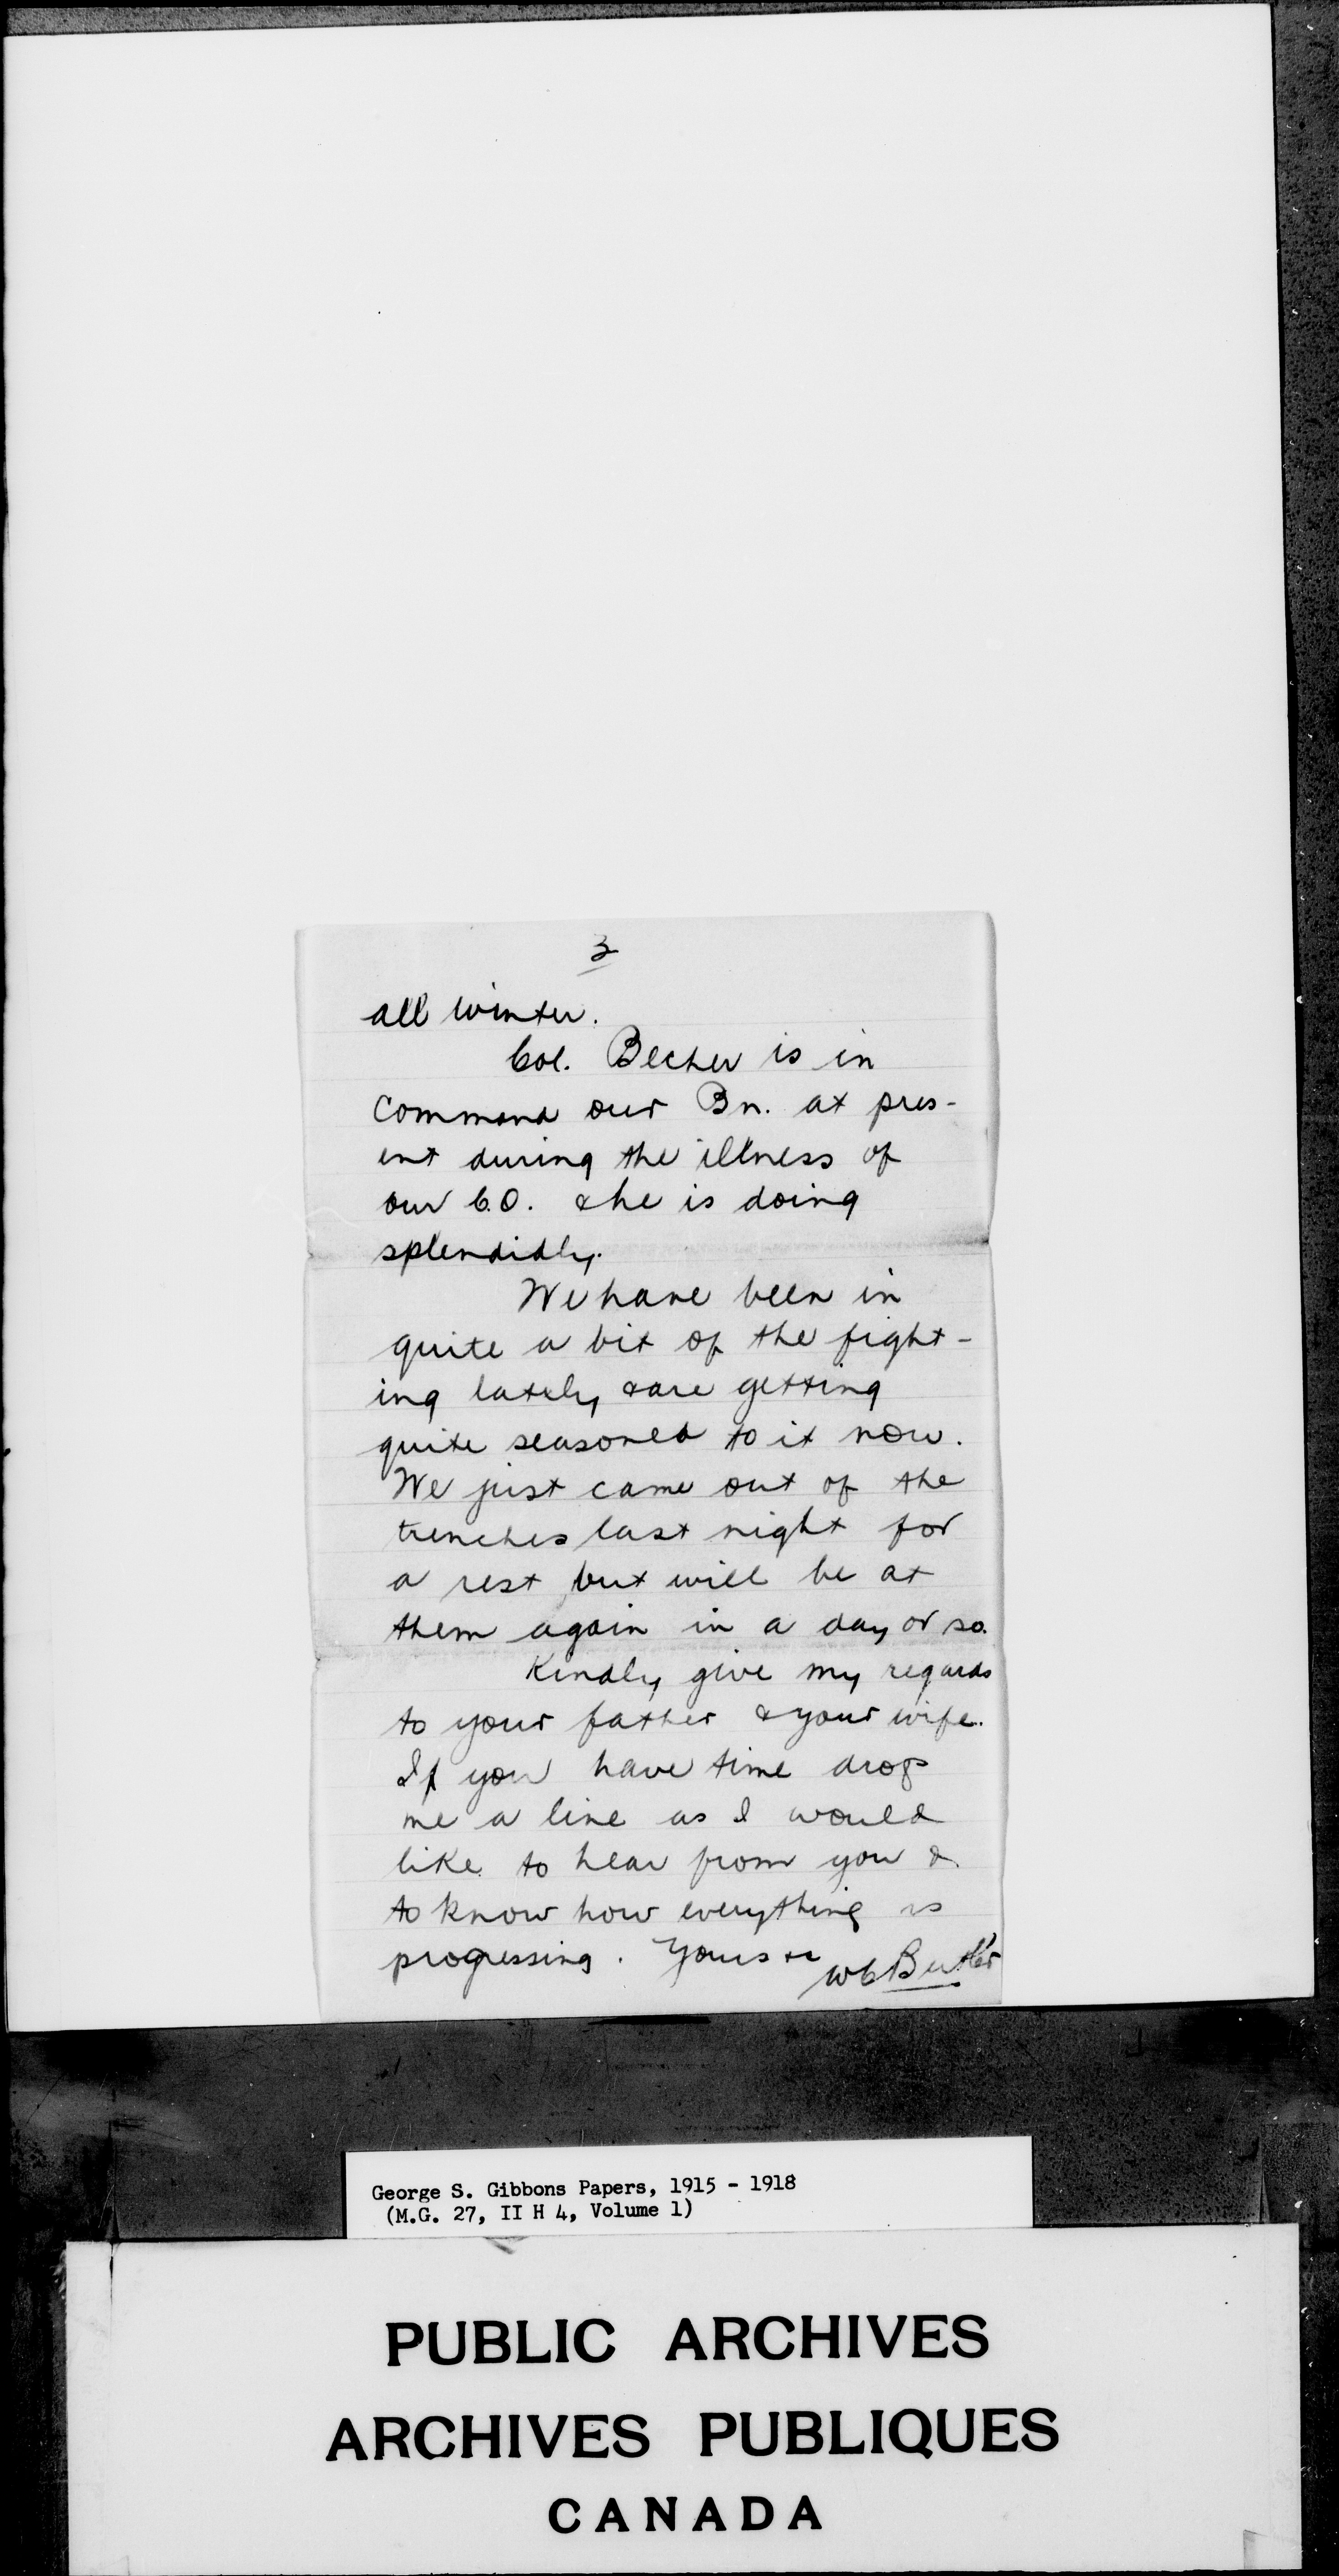 3
all winter.
Col. Becher is in
command our Bn. at pres-
ent during the illness of
our C.O. & he is doing
splendidly.
We have been in
quite a bit of the fight-
ing lately & are getting
quite seasoned to it now.
We just came out of the
trenches last night for
a rest, but will be at
them again in a day or so.
Kindly give my regards
to your father & your wife.
If you have time drop
me a line as I would
like to hear from you &
to know how everything is
progressing. Yours etc
WC Butler
George S. Gibbons Papers, 1915 - 1918
(M.G. 27, II H 4, Volume 1)
PUBLIC ARCHIVES
ARCHIVES PUBLIQUES
CANADA